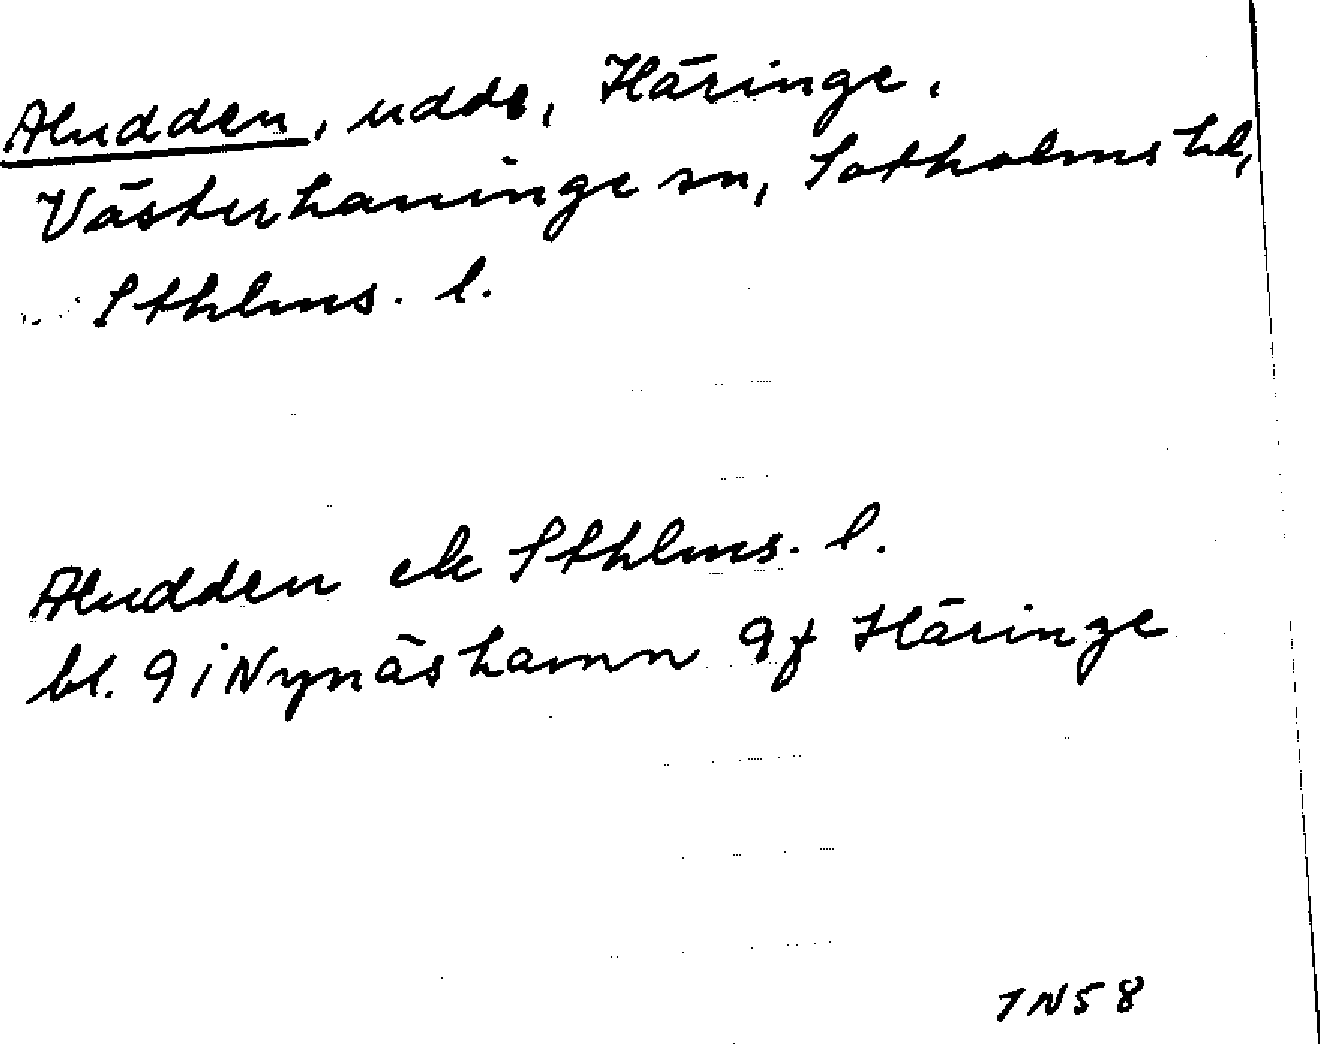 Aludden, udde, Häringe,
Västerhaninge sn, Sotholms hd,
Sthlms. l.
Aludden ek Sthlms. l.
bl. 9 i Nynäshamn 9f Häringe
TN58